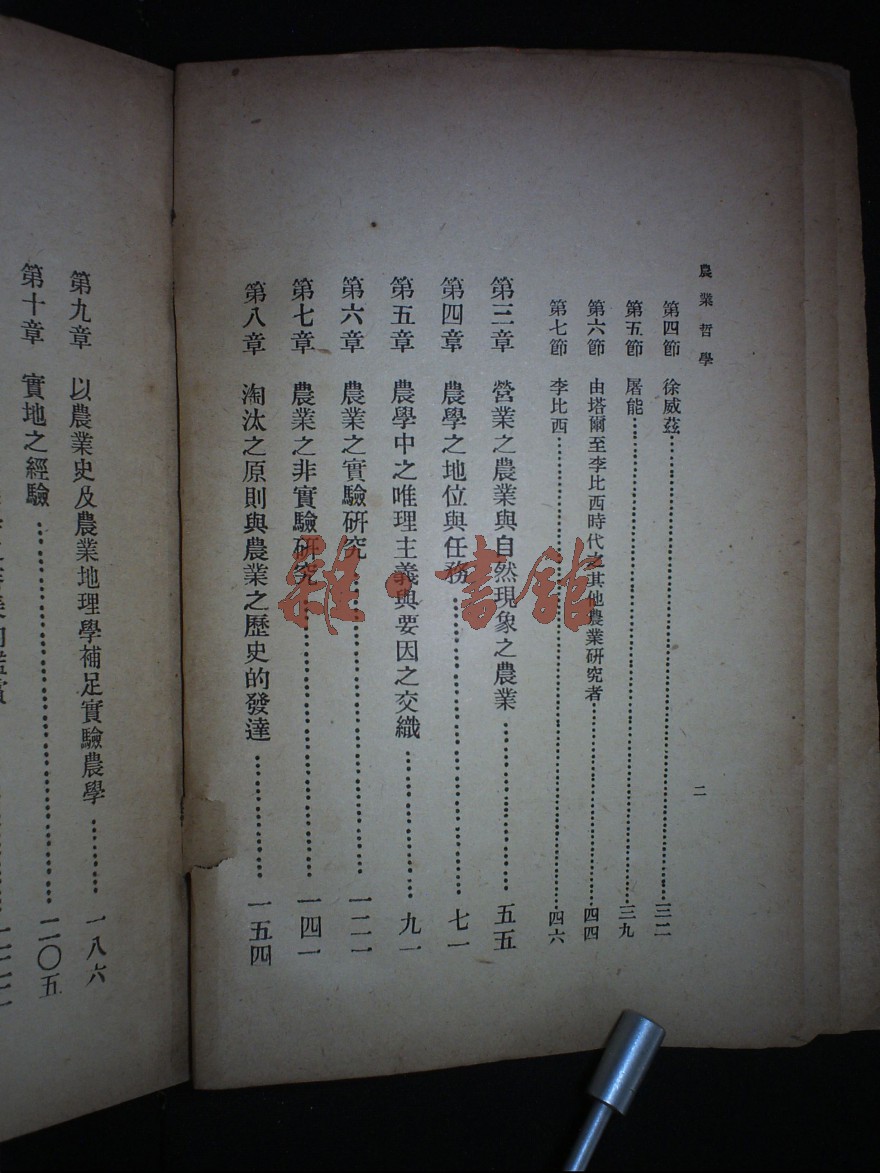 農業哲學
二
第四節 徐威茲 三二
第五節 屠能 三九
第六節 由塔爾至李比西時代之其他農業研究者 四四
第七節 李比西 四六
第三章 營業之農業與自然現象之農業 五五
第四章 農學之地位與任務 七一
第五章 農學中之唯理主義與要因之交織 九一
第六章 農業之實驗研究 一二一
第七章 農業之非實驗研究 一四一
第八章 淘汰之原則與農業之歷史的發達 一五四
第九章 以農業史及農業地理學補足實驗農學 一八六
第十章 實地之經驗 二〇五
雜·書館